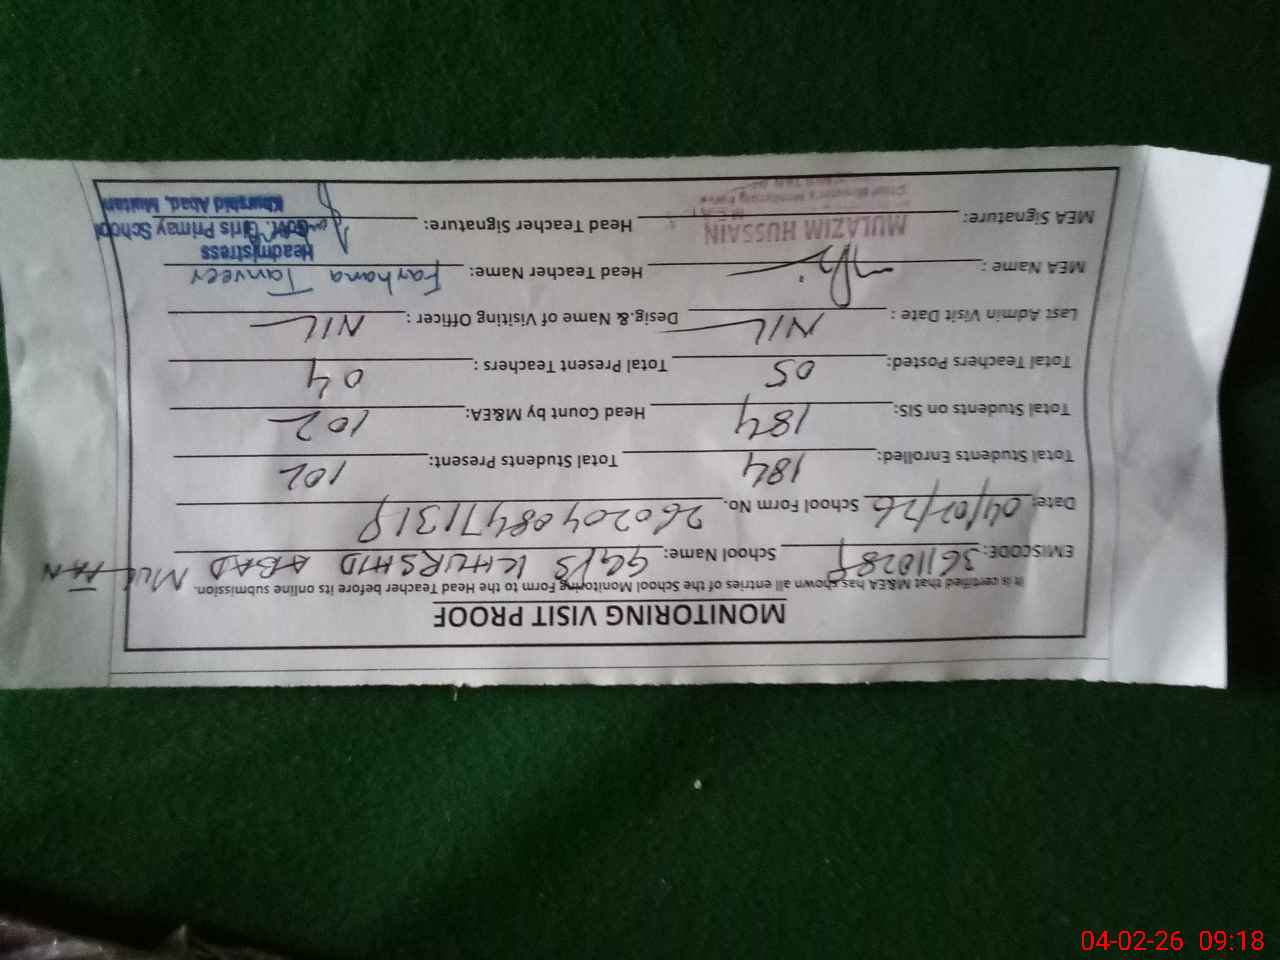 MONITORING VISIT PROOF
It is certified that M&EA has shown all entries of the School Monitoring Form to the Head Teacher before its online submission.
EMISCODE: School Name: GGPS KHURSHID ABAD MULTAN
Date: 04/02/26 School Form No.
Total Students Enrolled: 184 Total Students Present: 102
Total Students on SIS: 184 Head Count by M&EA: 102
Total Teachers Posted: 05 Total Present Teachers : 04
Last Admin Visit Date : NIL Desig.& Name of Visiting Officer : NIL
MEA Name : Head Teacher Name: Farhana Tanveer
MEA Signature: MULAZIM HUSSAIN Head Teacher Signature:
Headmistress
Govt. Girls Primay School
Khurshid Abad, Multan
04-02-26 09:18